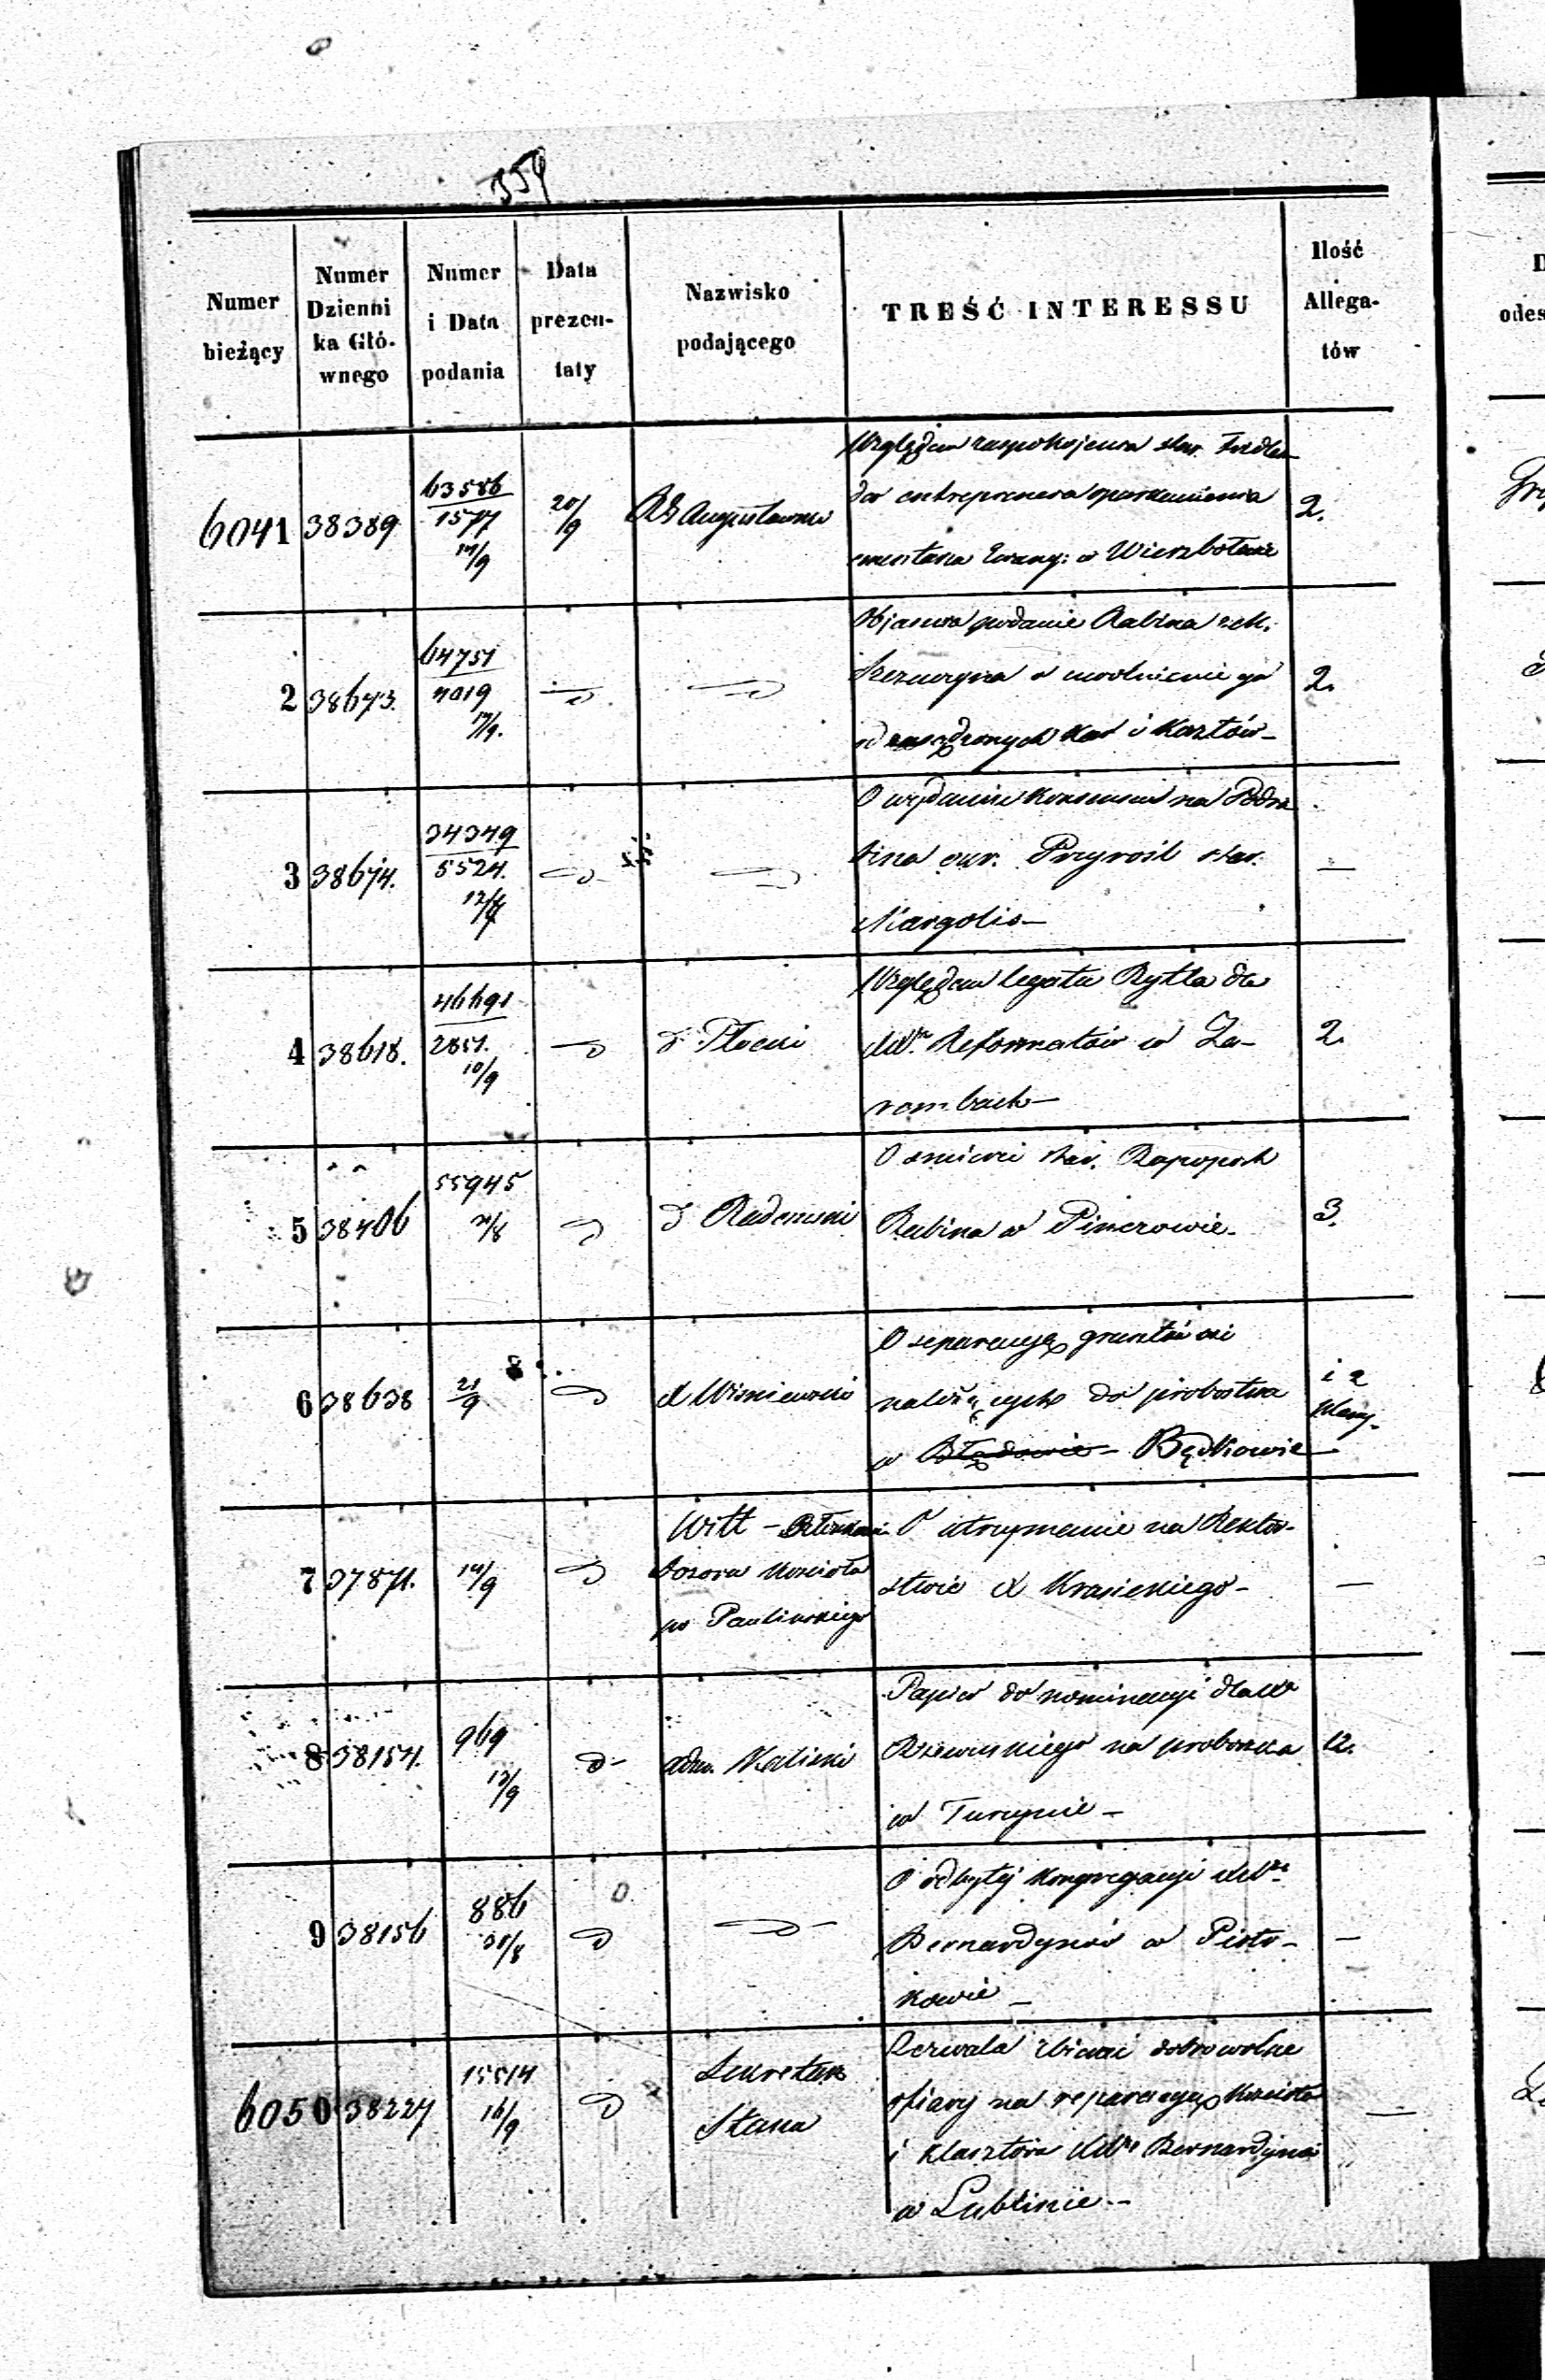 354
Numer bieżący
Numer Dzienni ka Głó- wnego
Numer i Data podania
Data prezen- taty
Nazwisko podającego
TREŚĆ INTERESSU
Ilość Allega- tów
6041 38389 63586 1577 14/9 20/9 RG Augustowski 2.
Względem zaspokojenia star.
dar entreprenera oparkanienia
cmentarza Ewang: w Wierzbołowie
2 38673. 64751 4019 2.
Objaśnia podanie Rabina
o uwolnienie go
kar i kosztów
3 38674. 34349 5524. 12/9 —
O wydanie konsensu na Podra
bina okr. Przyrośl star.
Margolis —
4 38618. 46691 2851. 10/9 d Płocki 2.
Względem legatu Rytla dla
Reformatów w Za-
rombach —
5 38406 55945 d Radomski 3.
O śmierci star. Rapoport
Rabina w Pinczowie.
6 38638 21/9 X Wiśniewski
O separacyę gruntów
należących do probostwa
w Błędowie — Będkowie
i 2
7 37871. 14/9 Witt —
Dozoru Kościoła
po Paulińskiego
O utrzymanie na Rektor-
stwie X Krasickiego —
—
8 38154. 969 13/9 adm. Kaliski 12.
Papier do nominacyi dla
na proboszcza
w Turzynie —
9 38156 886 31/8 —
O odbytej kongregacyi
Bernardynów w Piotr-
kowie —
6050 38227 15514 16/9 Sekretarz
Stanu
Zezwala zbierać dobrowolne
ofiary na reparacyę Kościoła
i klasztoru Bernardynów
w Lublinie —
—